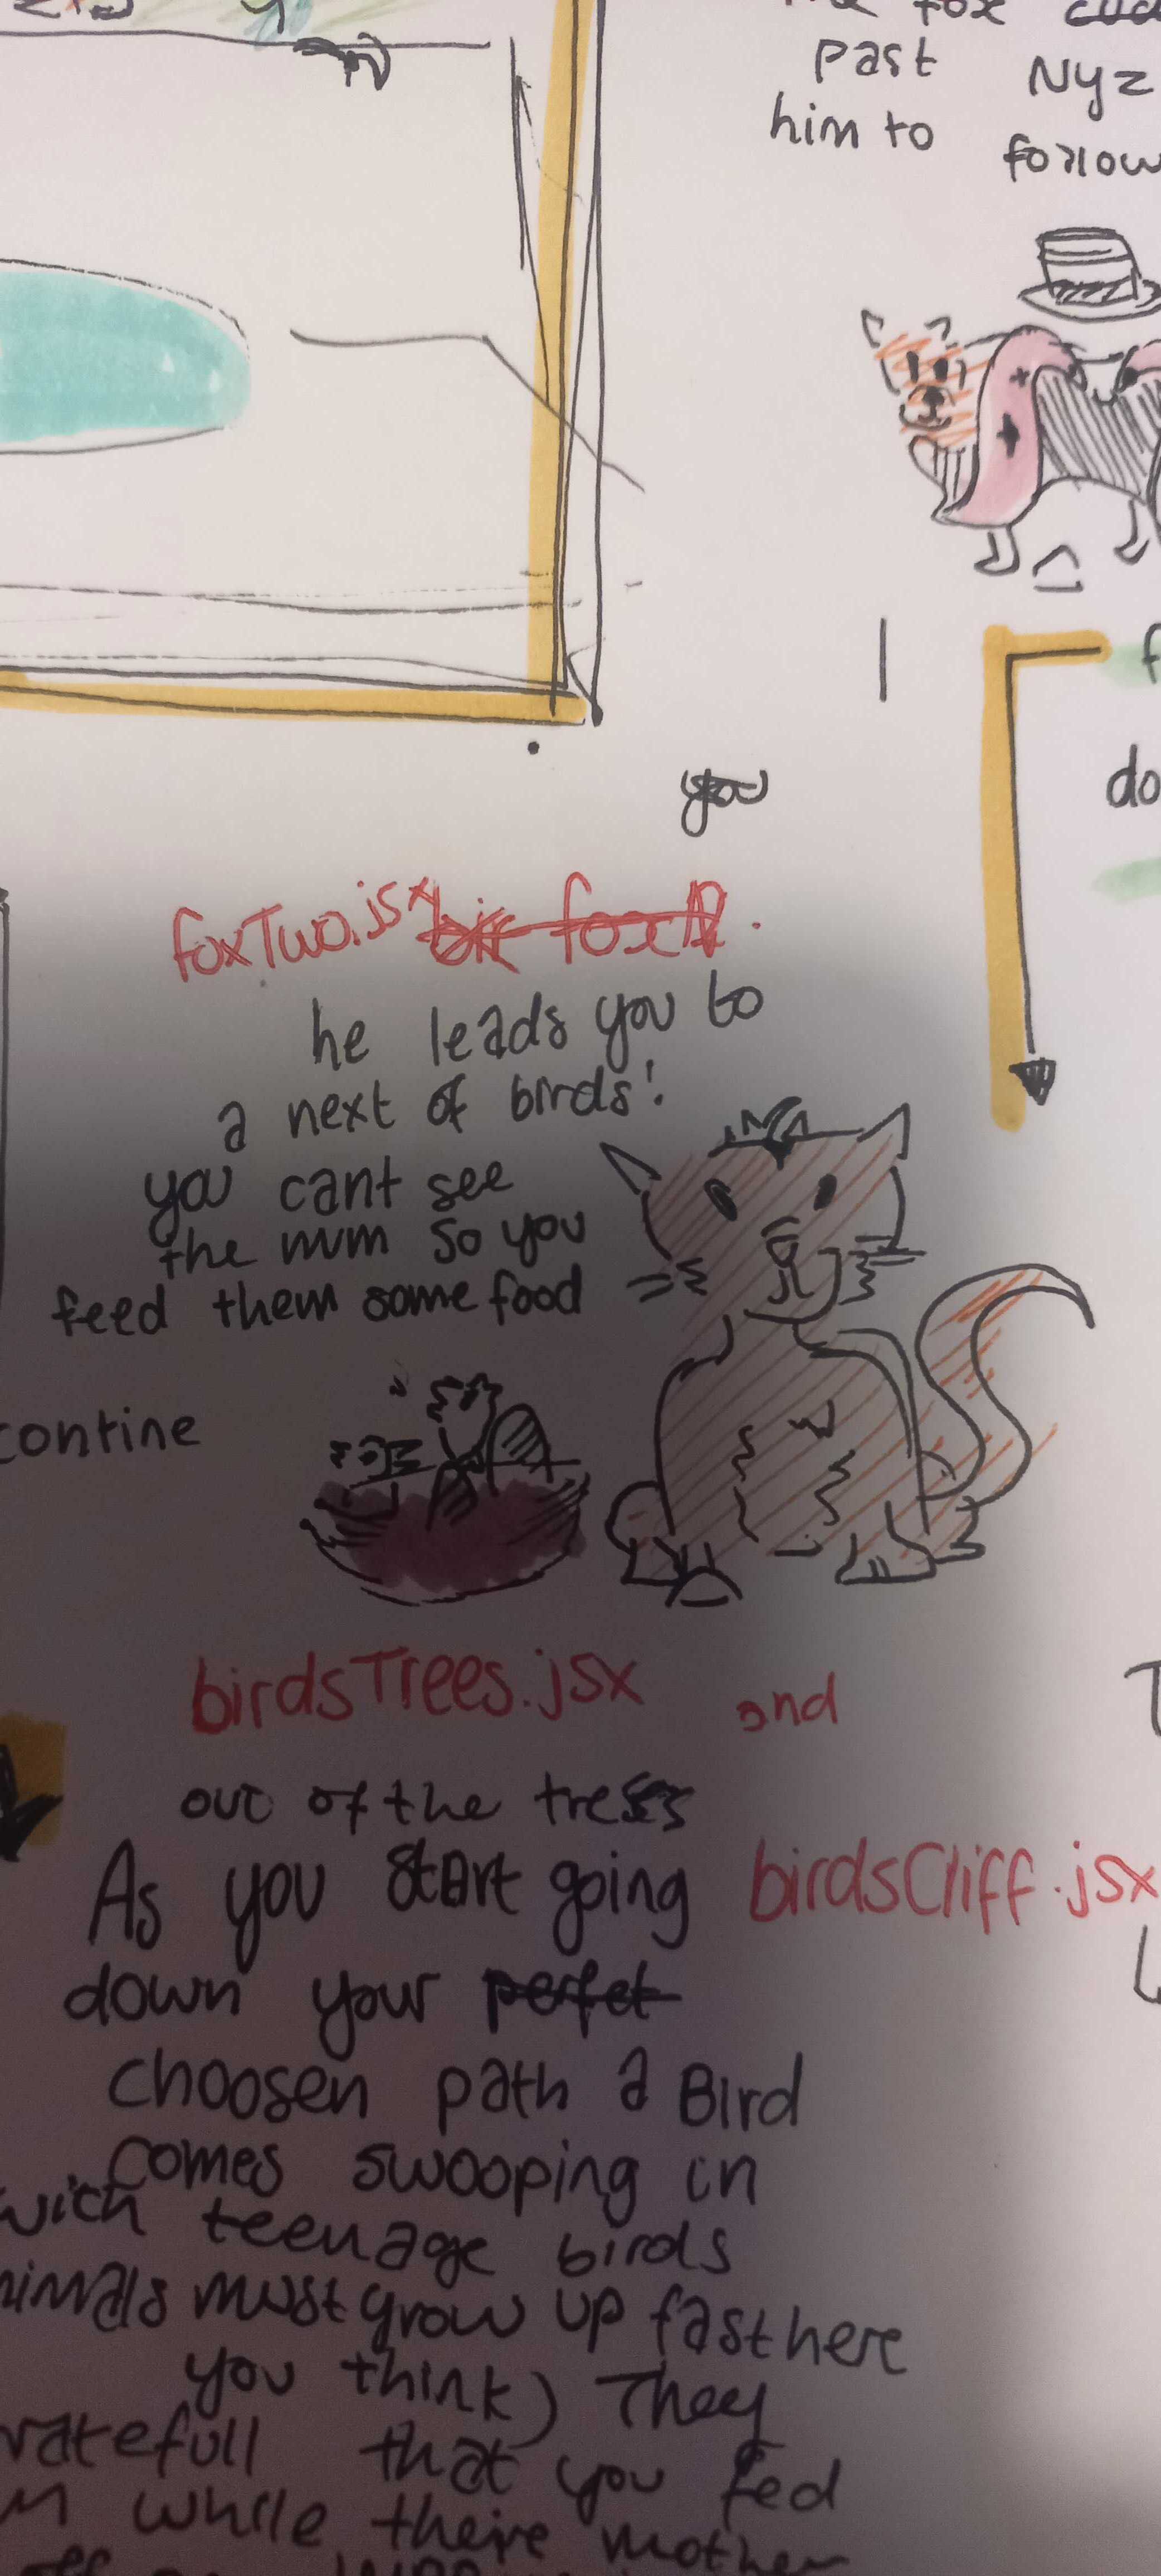 fox
past Nyz
him to follow
you
foxTwo.jsx
he leads you to
a next of birds!
you cant see
the mum so you
feed them some food
contine
birdsTrees.jsx and
out of the trees
As you start going birdsCliff.jsx
down your perfet
choosen path a Bird
comes swooping in
with teenage birds
nimals must grow up fast here
you think) They
ratefull that you fed
m while theire mother